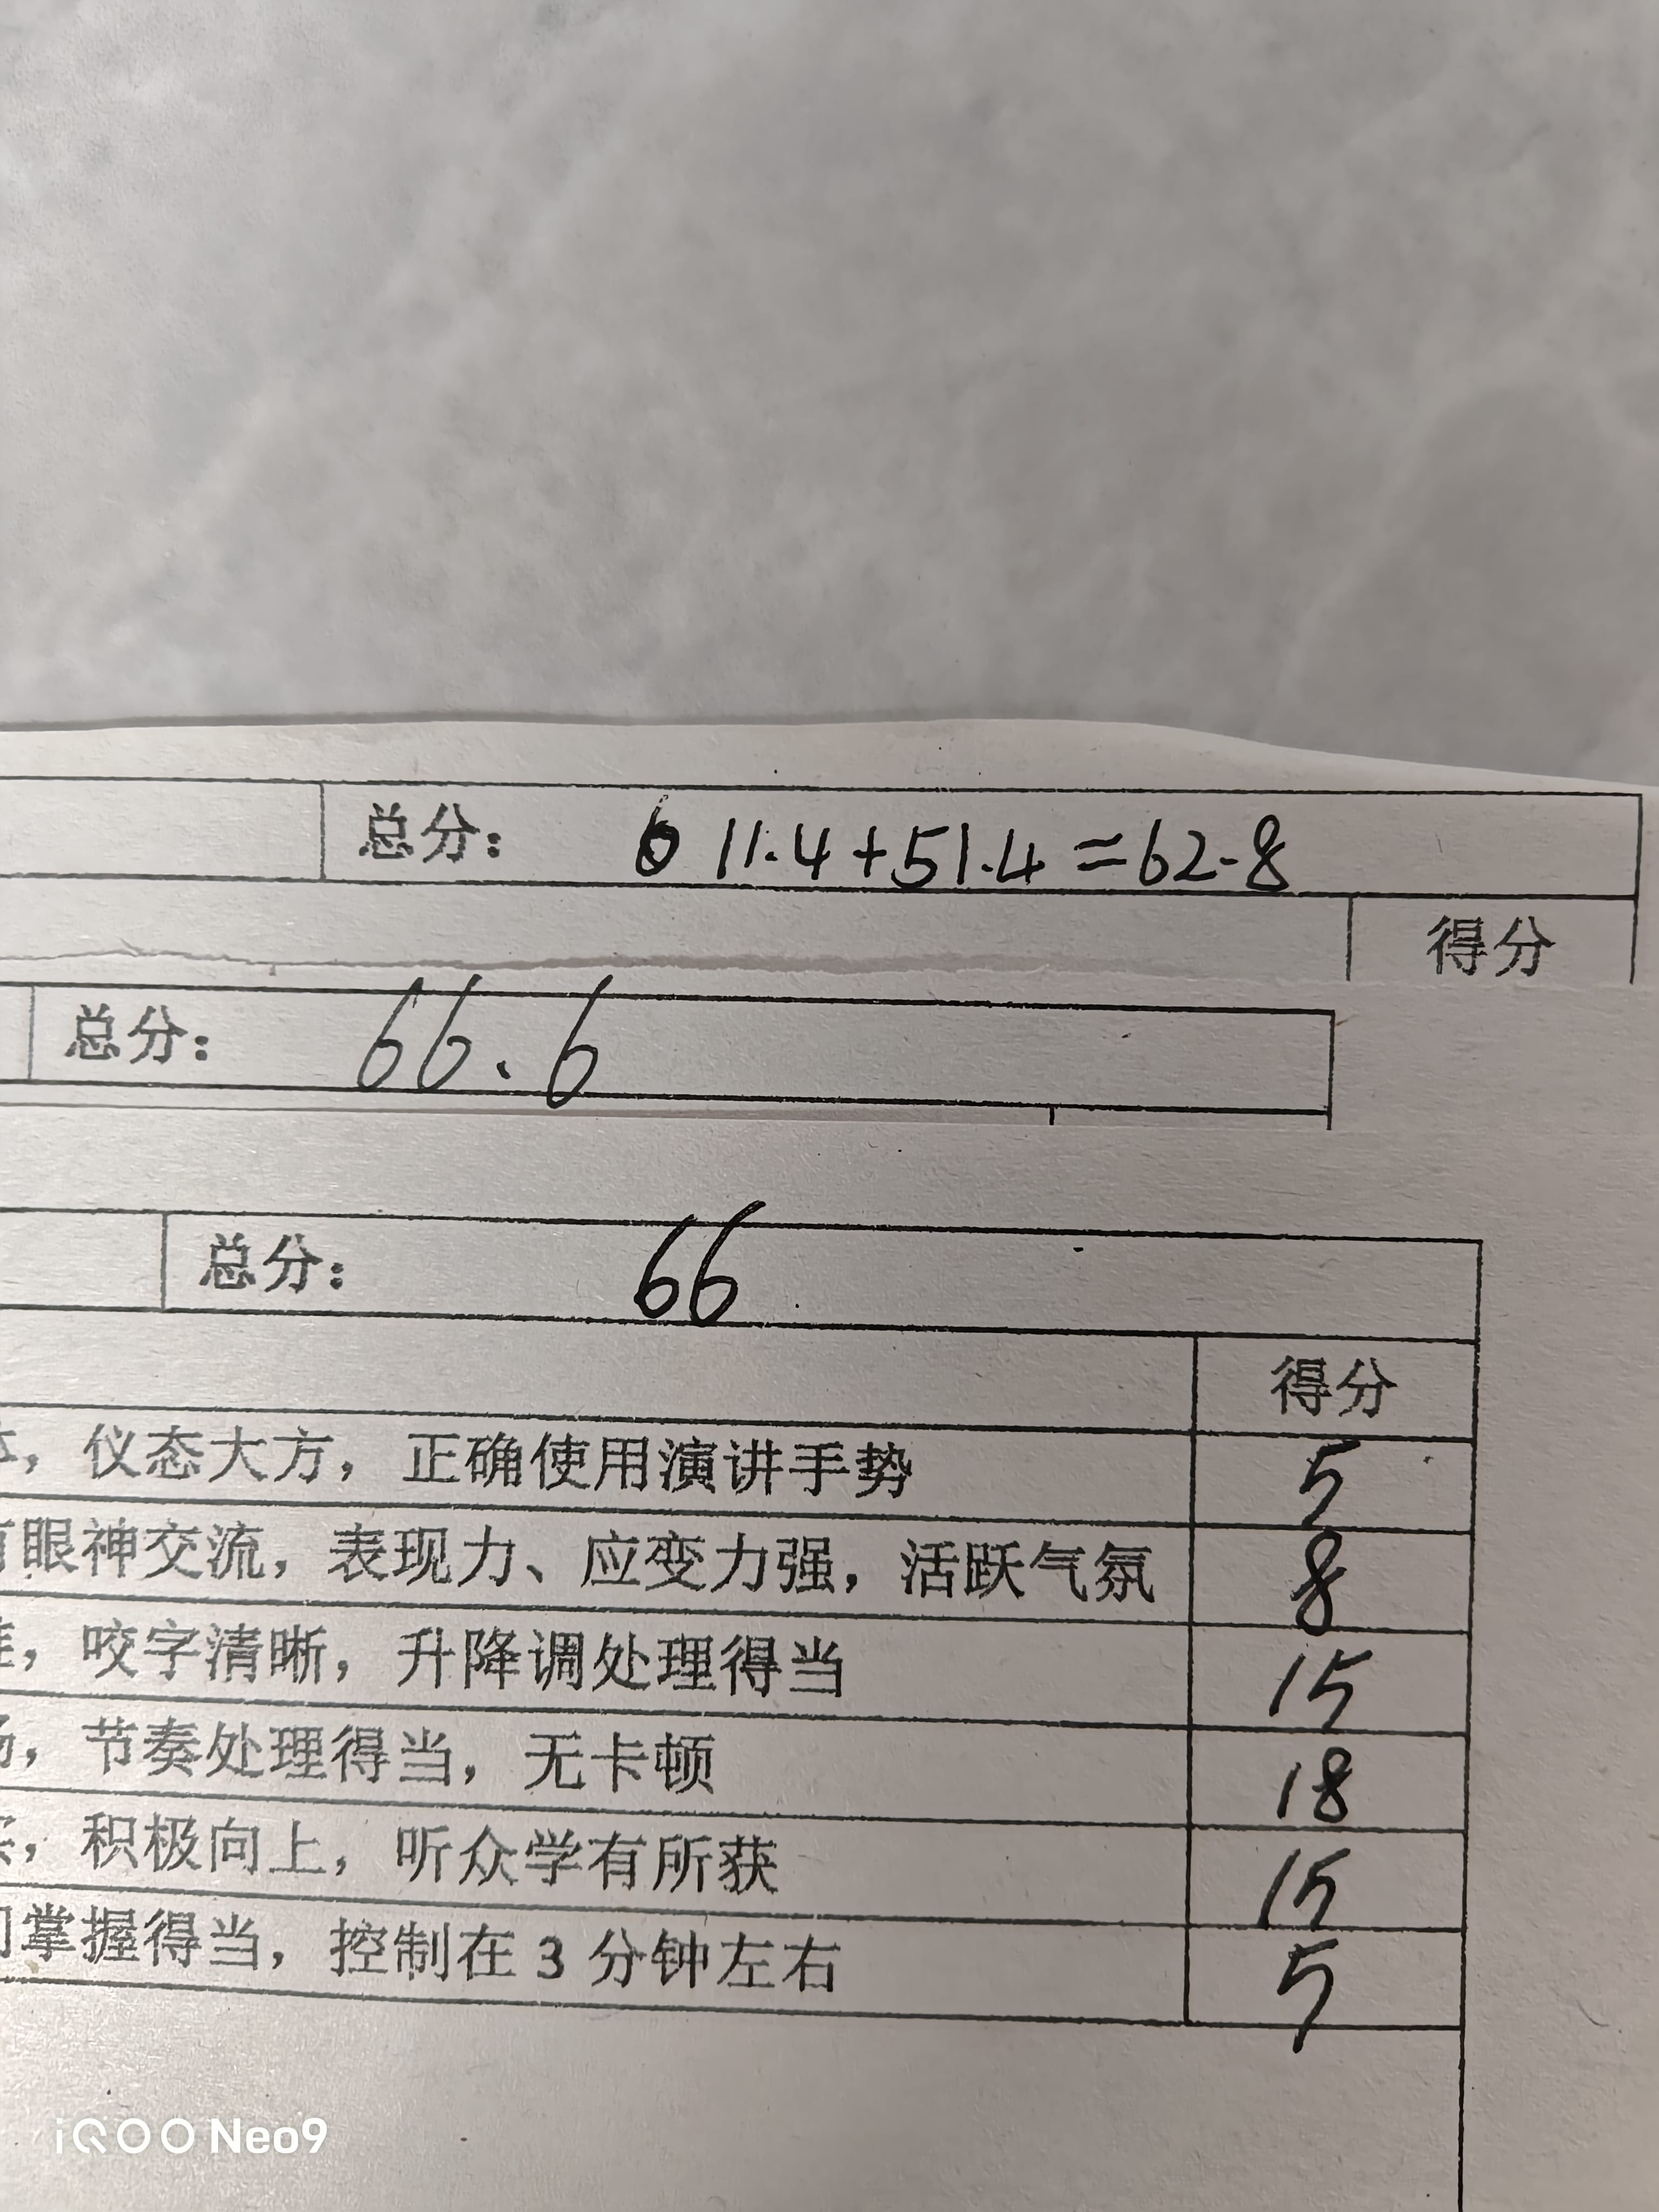 总分： 6 11.4+51.4=62.8
得分
总分： 66.6
总分： 66
得分
，仪态大方，正确使用演讲手势 5
眼神交流，表现力、应变力强，活跃气氛 8
，咬字清晰，升降调处理得当 15
，节奏处理得当，无卡顿 18
，积极向上，听众学有所获 15
掌握得当，控制在3分钟左右 5
iQOO Neo9